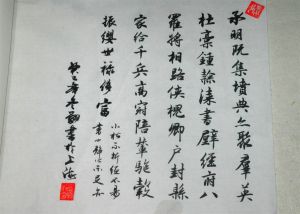 承明既集墳典亦聚羣英
杜稾鍾隸漆書壁經府八
羅將相路俠槐卿戶封縣
家給千兵高冠陪輦驅轂
振纓世祿侈富
癸巳年冬書於上海